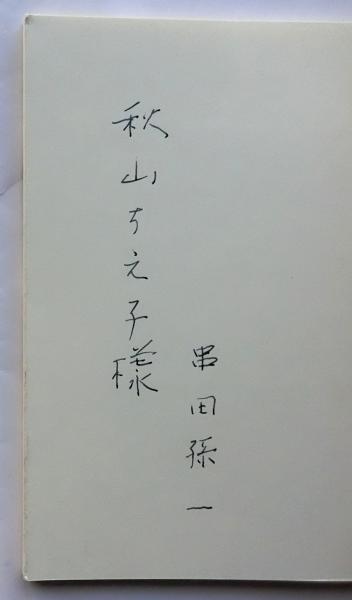 秋山ちえ子様
串田孫一